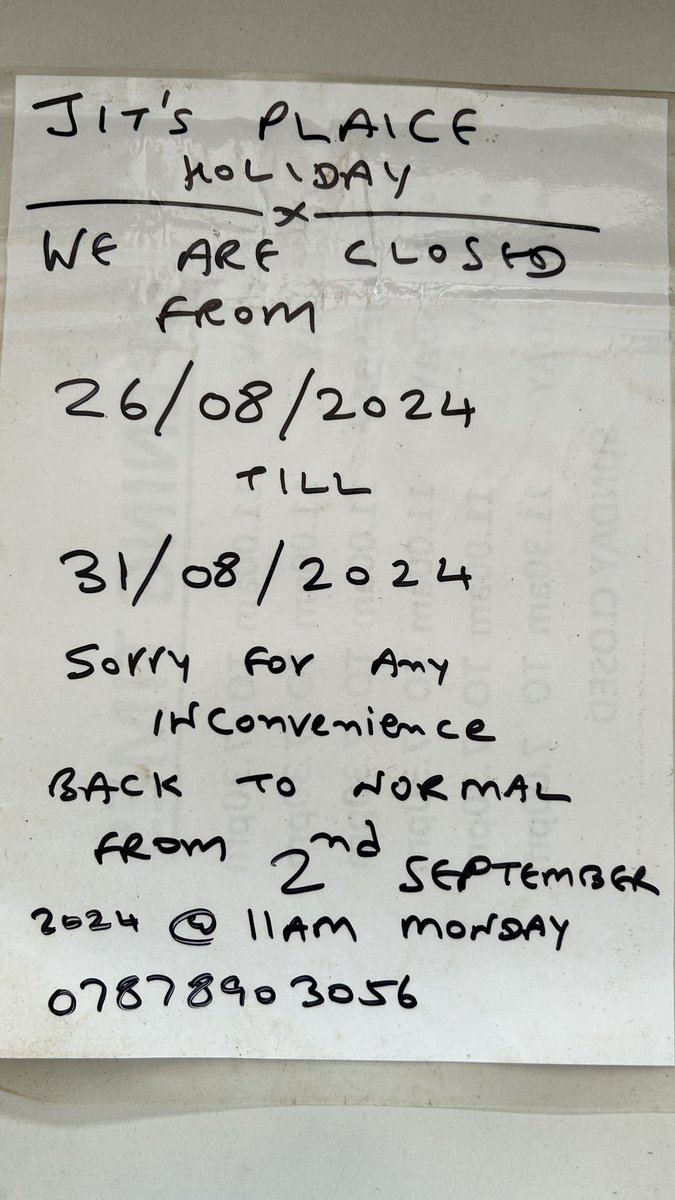 JIT'S PLAICE
HOLIDAY
WE ARE CLOSED
FROM
26/08/2024
TILL
31/08/2024
Sorry For Any
INConvenience
BACK TO NORMAL
FROM 2nd SEPTEMBER
2024 @ 11AM MONDAY
07878903056
SUNDAY CLOSED